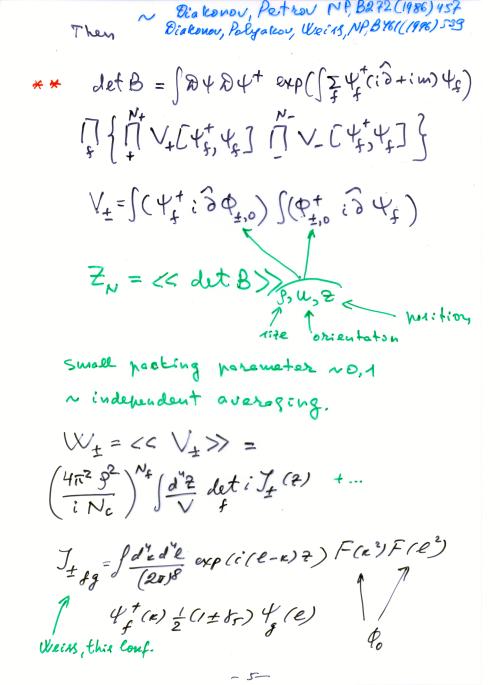 ~ Diakonov, Petrov NP, B272 (1986) 457
Then Diakonov, Polyakov, Weiss, NP, B461 (1996) 539
** det B = ∫ DΨ DΨ⁺ exp(∫ Σ_f Ψ_f⁺ (i∂̂ + im) Ψ_f)
∏_f { ∏_+^{N+} V_+[Ψ_f⁺, Ψ_f] ∏_-^{N-} V_-[Ψ_f⁺, Ψ_f] }
V_± = ∫(Ψ_f⁺ i∂̂ Φ_{±,0}) ∫(Φ⁺_{±,0} i∂̂ Ψ_f)
Z_N = << det B >> ρ, u, z
position
size orientaton
small packing parameter ~0,1
~ independent averaging.
W_± = << V_± >> =
(4π² ρ² / i N_c)^{N_f} ∫ d⁴z/V det_f i J_± (z) + ...
J_{± fg} = ∫ d⁴k d⁴l / (2π)⁸ exp(i(l-k)z) F(k²) F(l²)
Ψ_f⁺(k) ½ (1 ± γ₅) Ψ_g(l) Φ₀
Weiss, this conf.
- 5 -